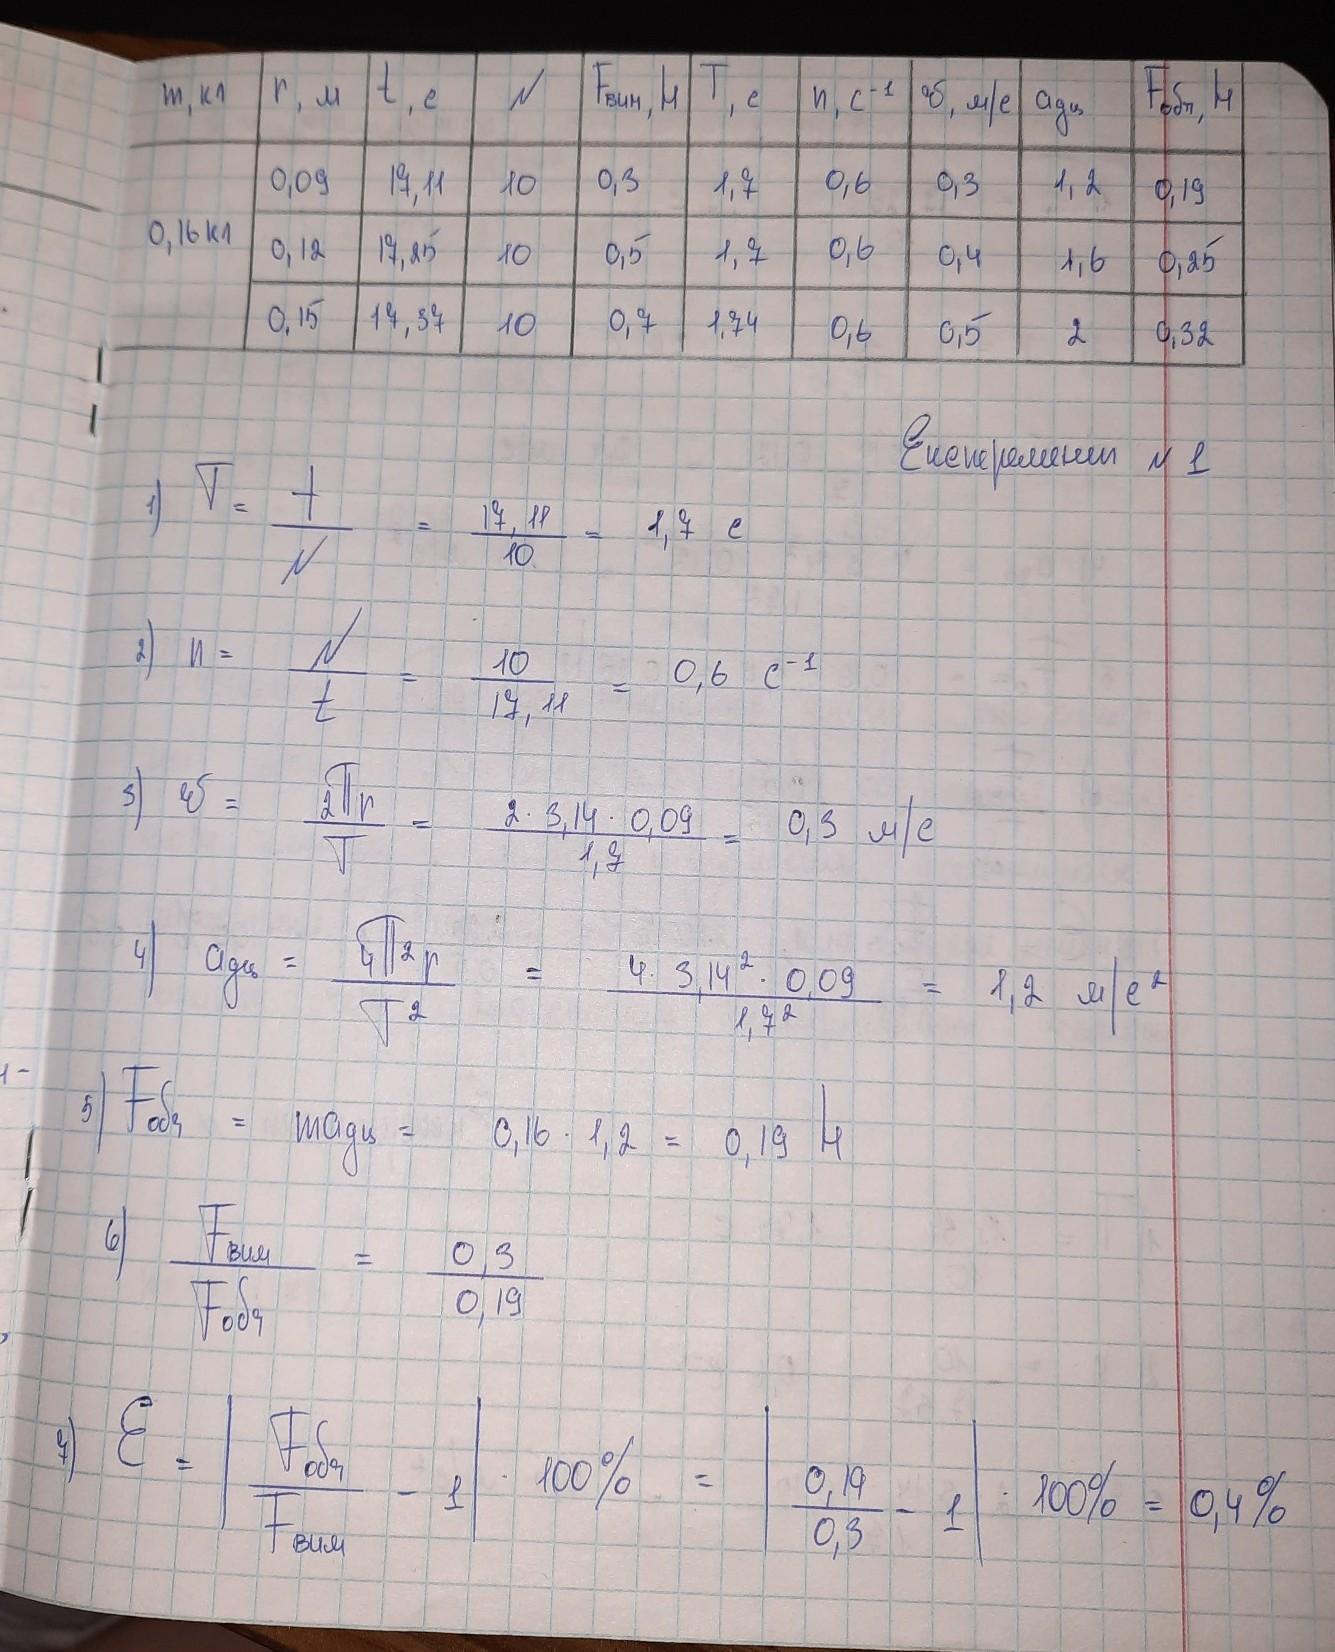 m, кг r, м t, с N Fвим, Н T, с n, с⁻¹ v, м/с aдц Fобч, Н
0,16 кг
0,09 17,11 10 0,3 1,7 0,6 0,3 1,2 0,19
0,12 17,25 10 0,5 1,7 0,6 0,4 1,6 0,25
0,15 17,37 10 0,7 1,74 0,6 0,5 2 0,32
Експеремент №1
1) T = t/N = 17,11/10 = 1,7 с
2) n = N/t = 10/17,11 = 0,6 с⁻¹
3) v = 2πr/T = 2·3,14·0,09/1,7 = 0,3 м/с
4) aдц = 4π²r/T² = 4·3,14²·0,09/1,7² = 1,2 м/с²
5) Fобч = maдц = 0,16·1,2 = 0,19 Н
6) Fвим/Fобч = 0,3/0,19
7) Ɛ = |Fобч/Fвим − 1| · 100% = |0,19/0,3 − 1| · 100% = 0,4%